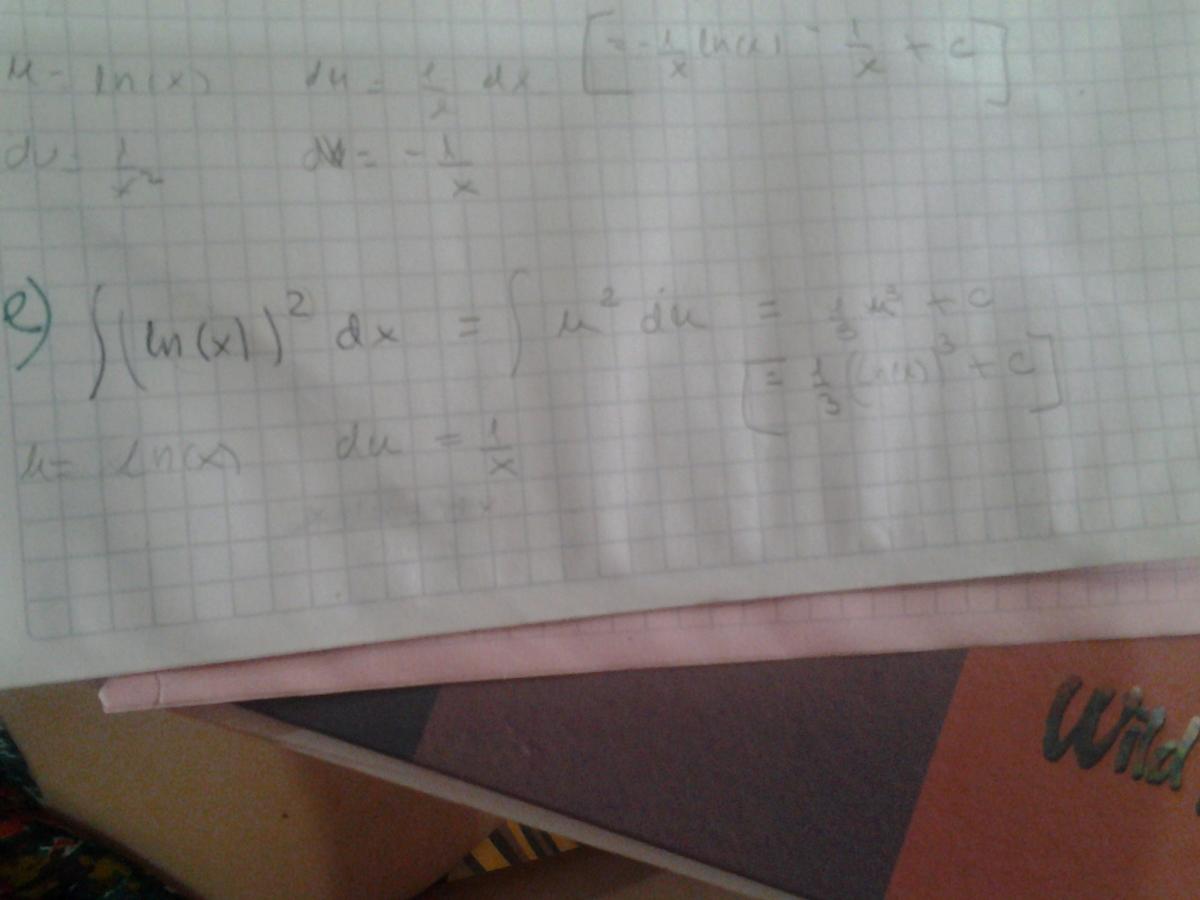 u = ln(x) du = 1/x dx [= -1/x ln(x) - 1/x + c]
dv = 1/x² dv = -1/x
e) ∫(ln(x))² dx = ∫ u² du = 1/3 u³ + c
[= 1/3 (ln(x))³ + c]
u = ln(x) du = 1/x
Wild